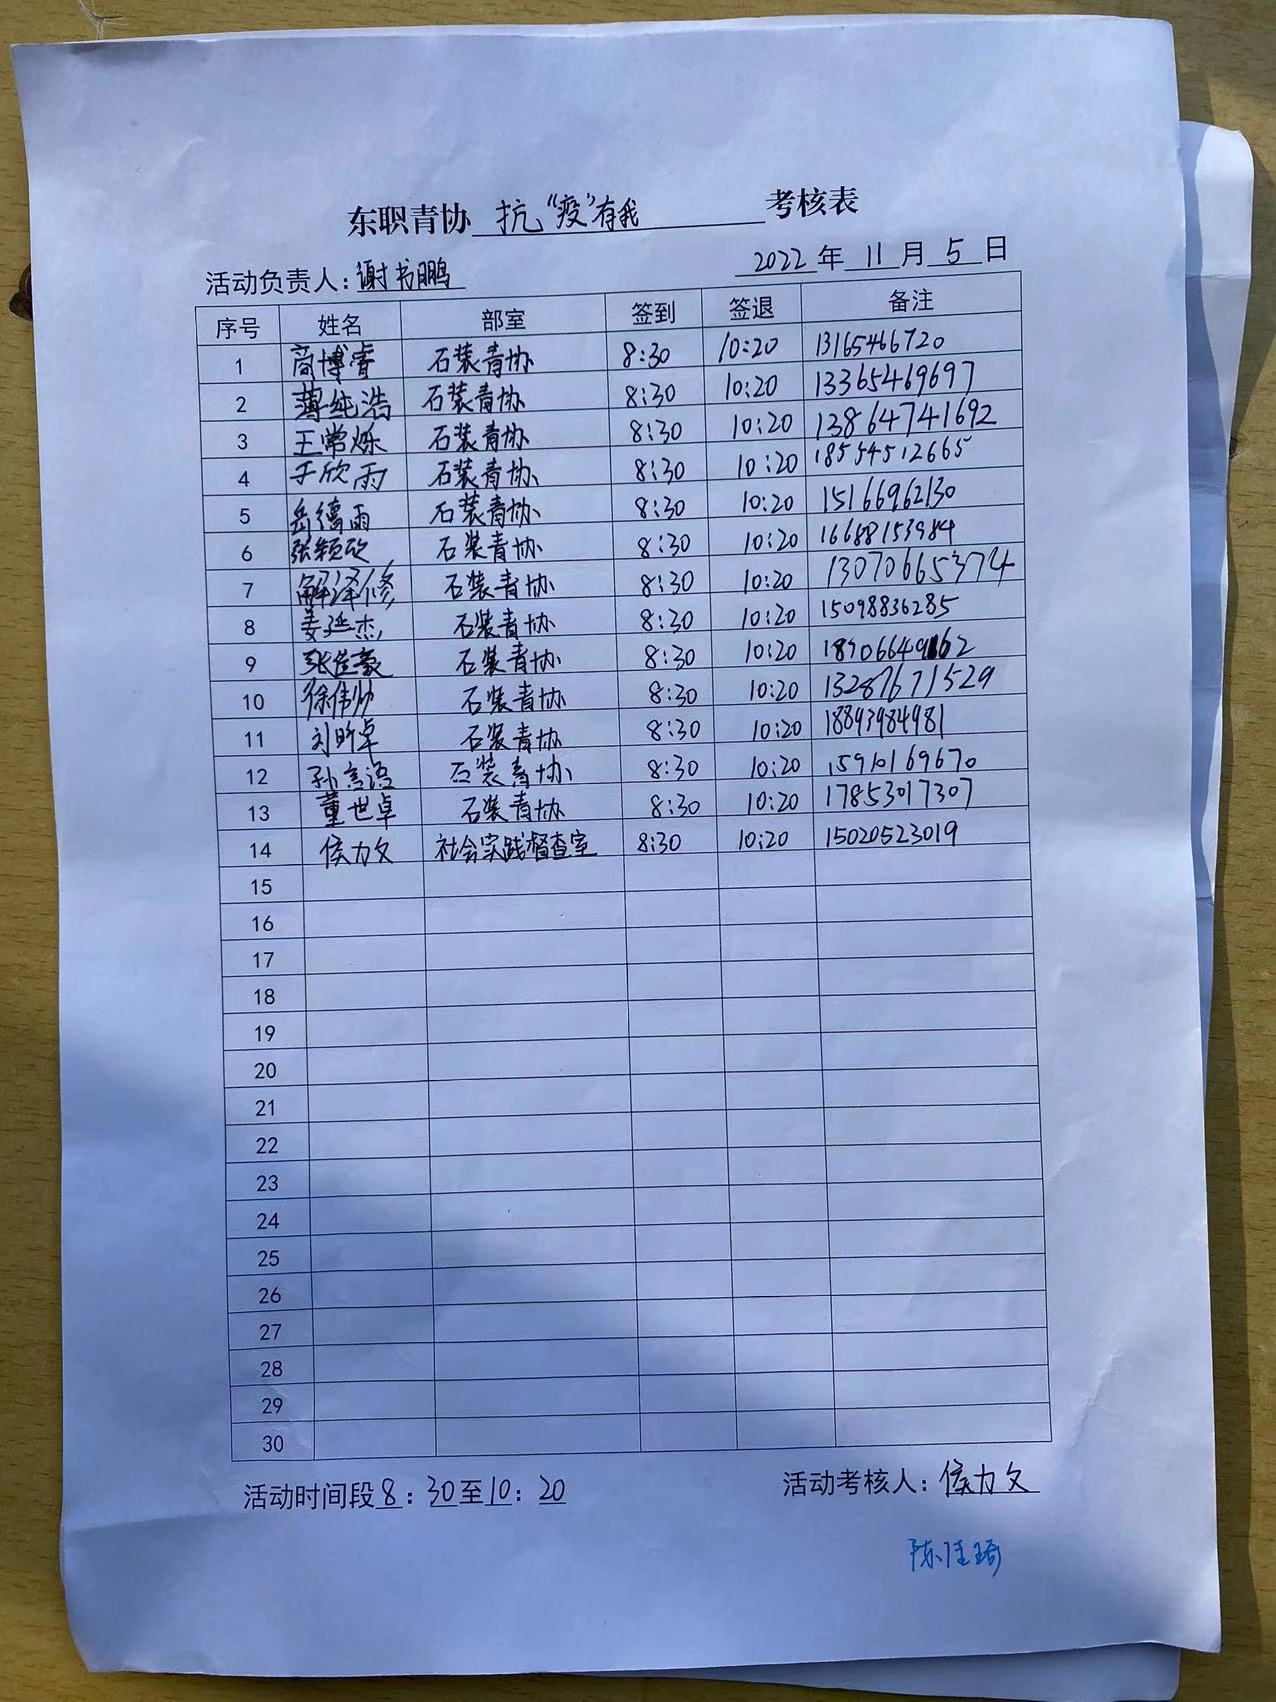 东职青协 抗“疫”有我 考核表
活动负责人：谢书鹏 2022 年 11 月 5 日
序号 姓名 部室 签到 签退 备注
1 商博睿 石装青协 8:30 10:20 13165466720
2 薄纯浩 石装青协 8:30 10:20 13365469697
3 王常烁 石装青协 8:30 10:20 13864741692
4 于欣雨 石装青协 8:30 10:20 18554512665
5 岳德雨 石装青协 8:30 10:20 15166962130
6 张颖欣 石装青协 8:30 10:20 16688153984
7 解泽修 石装青协 8:30 10:20 13070665374
8 姜延杰 石装青协 8:30 10:20 15098836285
9 张佳豪 石装青协 8:30 10:20
10 徐伟帅 石装青协 8:30 10:20 13287671529
11 刘昕卓 石装青协 8:30 10:20 18893984981
12 孙言语 石装青协 8:30 10:20 15910169670
13 董世卓 石装青协 8:30 10:20 17853017307
14 侯力文 社会实践督查室 8:30 10:20 15020523019
15
16
17
18
19
20
21
22
23
24
25
26
27
28
29
30
活动时间段 8：30 至 10：20 活动考核人：侯力文
陈佳琦